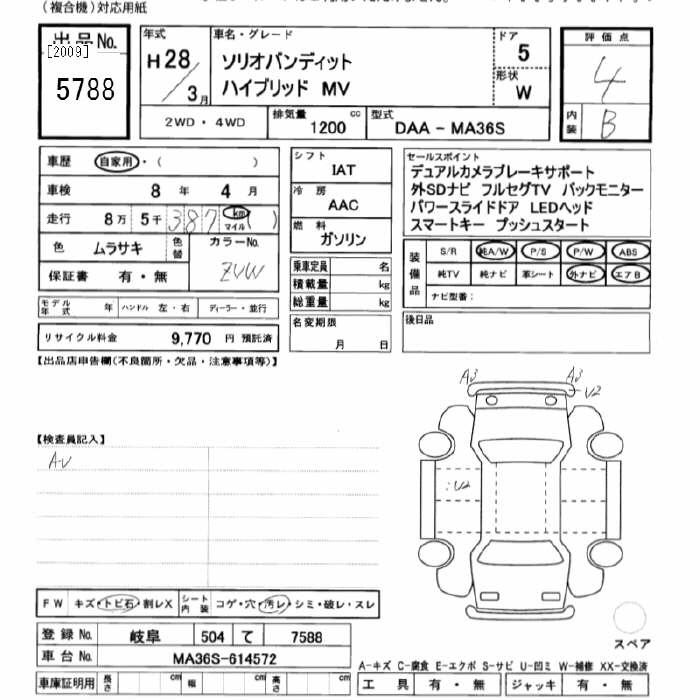 (複合機)対応用紙
出品No.
[2009]
5788
年式
H28/3月
車名・グレード
ソリオバンディット
ハイブリッド MV
ドア
5
形状
W
評価点
4
内装
B
2WD・4WD
排気量
1200 cc
型式
DAA - MA36S
車歴
自家用・( )
車検
8 年 4 月
走行
8万 5千 387 km マイル ( )
色
ムラサキ
色替
カラーNo.
ZVW
保証書
有・無
シフト
IAT
冷房
AAC
燃料
ガソリン
乗車定員 名
積載量 kg
総重量 kg
セールスポイント
デュアルカメラブレーキサポート
外SDナビ フルセグTV バックモニター
パワースライドドア LEDヘッド
スマートキー プッシュスタート
装備品
S/R 純A/W P/S P/W ABS
純TV 純ナビ 革シート 外ナビ エアB
ナビ型番:
モデル年式 年 ハンドル 左・右 ディーラー・並行
リサイクル料金 9,770 円 預託済
名変期限
月 日
後日品
【出品店申告欄(不良箇所・欠品・注意事項等)】
A3 A3
U2
【検査員記入】
AU
U2
FW キズ・トビ石・割レX シート内装 コゲ・穴・汚レ・シミ・破レ・スレ
登録No. 岐阜 504 て 7588
車台No. MA36S-614572
スペア
A-キズ C-腐食 E-エクボ S-サビ U-凹ミ W-補修 XX-交換済
車庫証明用 長さ cm 幅 cm 高さ cm
工具 有・無 ジャッキ 有・無